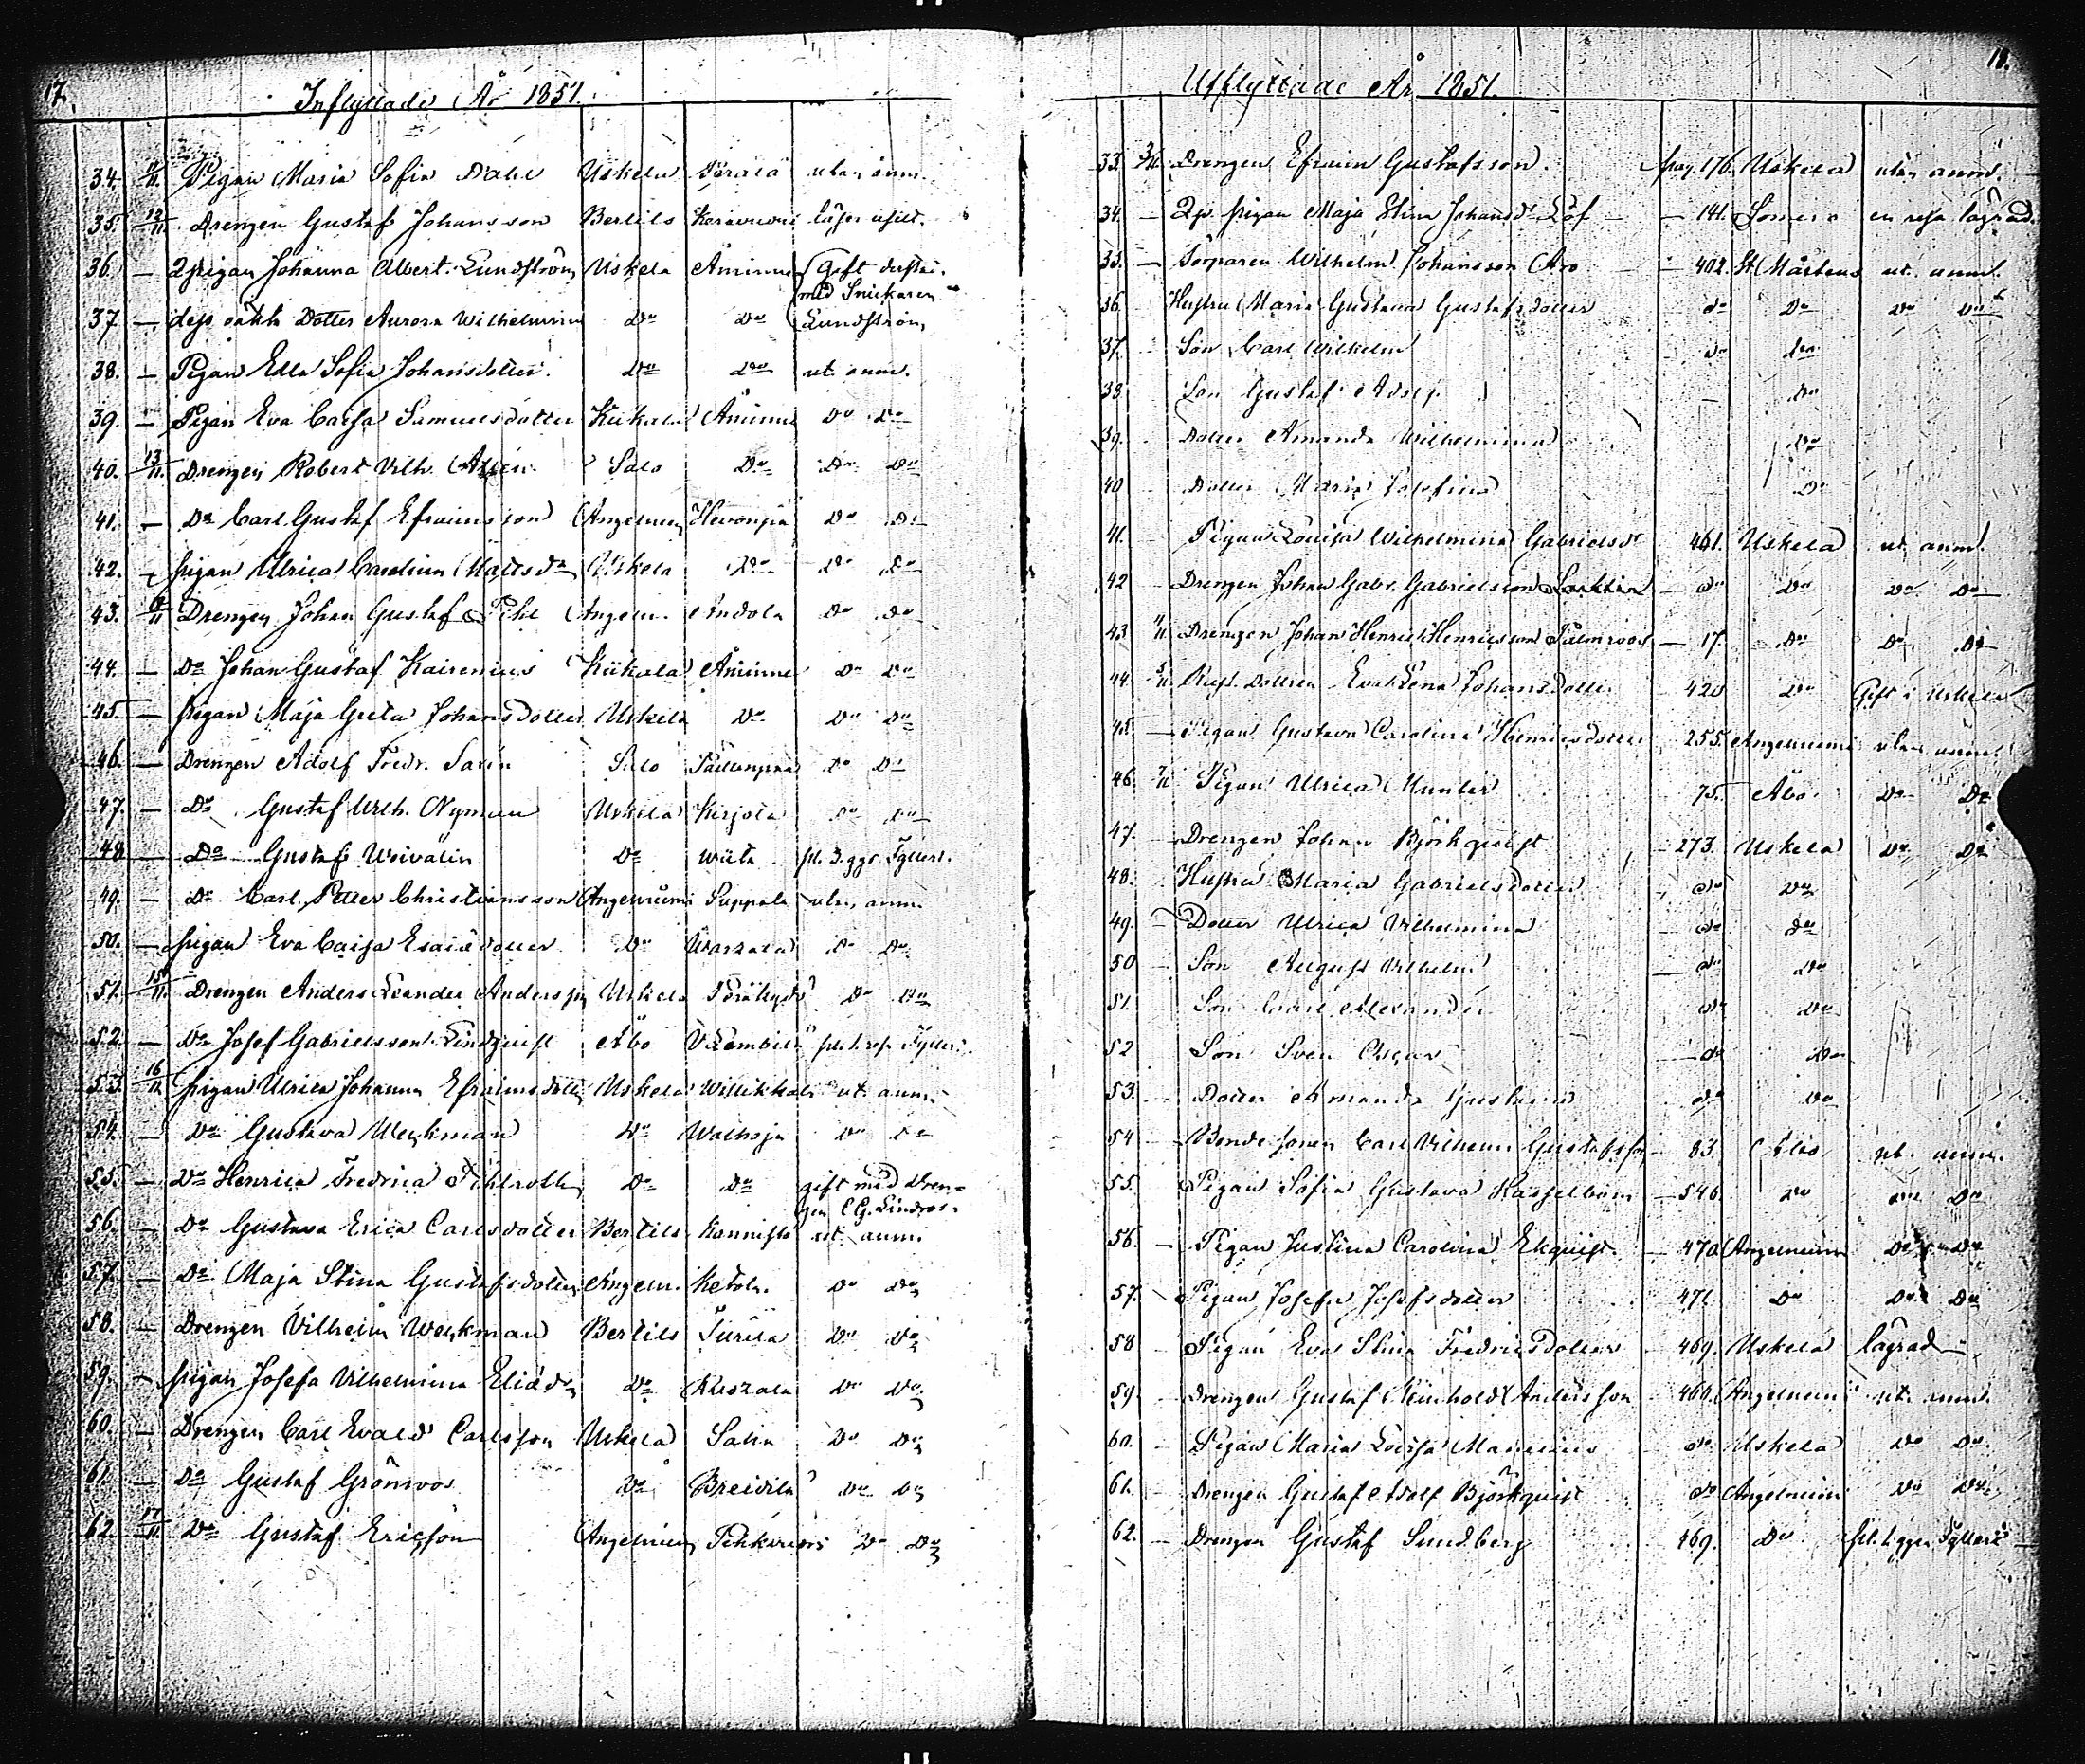 17.
Inflyttade År 1851.
34. 11/11 Pigan Maria Sofia Dahl Uskela Pärälä utan anm.
35. 12/11 Drengen Gustaf Johansson Bertils läser
36. — Pigan Johanna Albert. Lundström Uskela Åminne Gift derstäd.
med Snickaren
37 — dess oäkta Dotter Aurora Wilhelmina Do Do Lundström
38. — Pigan Edla Sofia Johansdotter Do Do ut anm.
39. — Pigan Eva Caisa Samuelsdotter Kiikala Åminne Do Do
40. 13/11 Drengen Robert Vilh. Salo Do Do Do
41. — Do Carl Gustaf Efraimsson Angelniemi Hevonpää Do Do
42. — pigan Ulrica Carolina Matsdr Uskela Do Do Do
43. Drengen Johan Gustaf Pihl Angeln. Do Do
44. — Do Johan Gustaf Kairenius Kiikala Åminne Do Do
45. — pigan Maja Greta Johansdotter Uskela Do Do Do
46. — Drengen Adolf Fredr. Salo Do Do
47. — Do Gustaf Vilh. Nyman Uskela Kirjola Do Do
48 — Do Gustaf Do Wiita pl. 3. ggr Fylleri.
49. — Do Carl Petter Christiansson Angelniemi Puppola utan anm.
50. — pigan Eva Caisa Esaiædotter Do Do Do
51. 15/11 Drengen Anders Leander Andersson Uskela Do Do
52. — Do Josef Gabrielsson Lindquist Åbo Fylleri.
53. 16/11 pigan Ulrica Johanna Efraimsdotter Uskela ut anm.
54. — Do Gustava Weckman Do Walhoja Do Do
55. — Do Henrica Fredrica Do Do gift med Dren-
gen C. G. Lindroos.
56. — Do Gustava Erica Carlsdotter Bertils Kannisto ut anm.
57. — Do Maja Stina Gustafsdotter Angeln. Ketola Do Do
58. — Drengen Vilhelm Weckman Bertils Do Do
59. — pigan Josefa Vilhelmina Eliædr Do Do Do
60. — Drengen Carl Evald Carlsson Uskela Do Do
61. — Do Gustaf Grönroos Do Breidila Do Do
62. 17/11 Do Gustaf Ericsson Angelniemi Do Do
18.
Utflyttade År 1851.
33. 3/11 Drengen Efraim Gustafsson. pag. 176. Uskela utan anm.
34. — pigan Maja Stina Johansdr Löf — 141. Somero en resa lagråd.
35. — Torparen Wilhelm Johansson Aro — 402. St Mårtens ut. anm.
36. Hustru Maria Gustava Gustafsdotter do Do Do Do
37. Son Carl Wilhelm do Do
38. Son Gustaf Adolf Do
39. Dotter Amanda Wilhelmina Do
40 Dotter Maria Josefina Do
41. Pigan Lovisa Wilhelmina Gabrielsdr 461. Uskela ut anm.
42 Drengen Johan Gabr. Gabrielsson — do Do Do Do
43. Drengen Johan Henric Henricsson Palmroos — 17. Do Do Do
44. 5/11 Rust. Dottren Eva Lena Johansdotter — 420 Do Gift i Uskela
45. — Pigan Gustava Carolina Henricsdotter 255. Angelniemi utan anm.
46. 7/11 Pigan Ulrica Munter 75. Åbo Do Do
47. — Drengen Johan Björkqvist 273. Uskela Do Do
48. Hustru Maria Gabrielsdotter do Do
49. — Dotter Ulrica Vilhelmina do Do
50 — Son August Vilhelm do Do
51. Son Carl Alexander do Do
52 Son Sven Oscar do Do
53. Dotter Amanda Gustava do Do
54 — Bondesonen Carl Vilhelm Gustafsson 83. Åbo ut. anm.
55. Pigan Sofia Gustava Hasselbom — 546 Do Do Do
56. — Pigan Justina Carolina Ekquist — 470 Angelniemi Do Do
57. Pigan Josefa Josefsdotter 471. Do Do Do
58 Pigan Eva Stina Fredricsdotter 469. Uskela lagråd —
59. Drengen Gustaf Reinhold Andersson 460. Angelniemi ut. anm.
60. Pigan Maria Lovisa do Uskela Do Do
61. Drengen Gustaf Adolf Björkquist do Angelniemi Do Do
62. Drengen Gustaf Sundberg 469. Do Fylleri